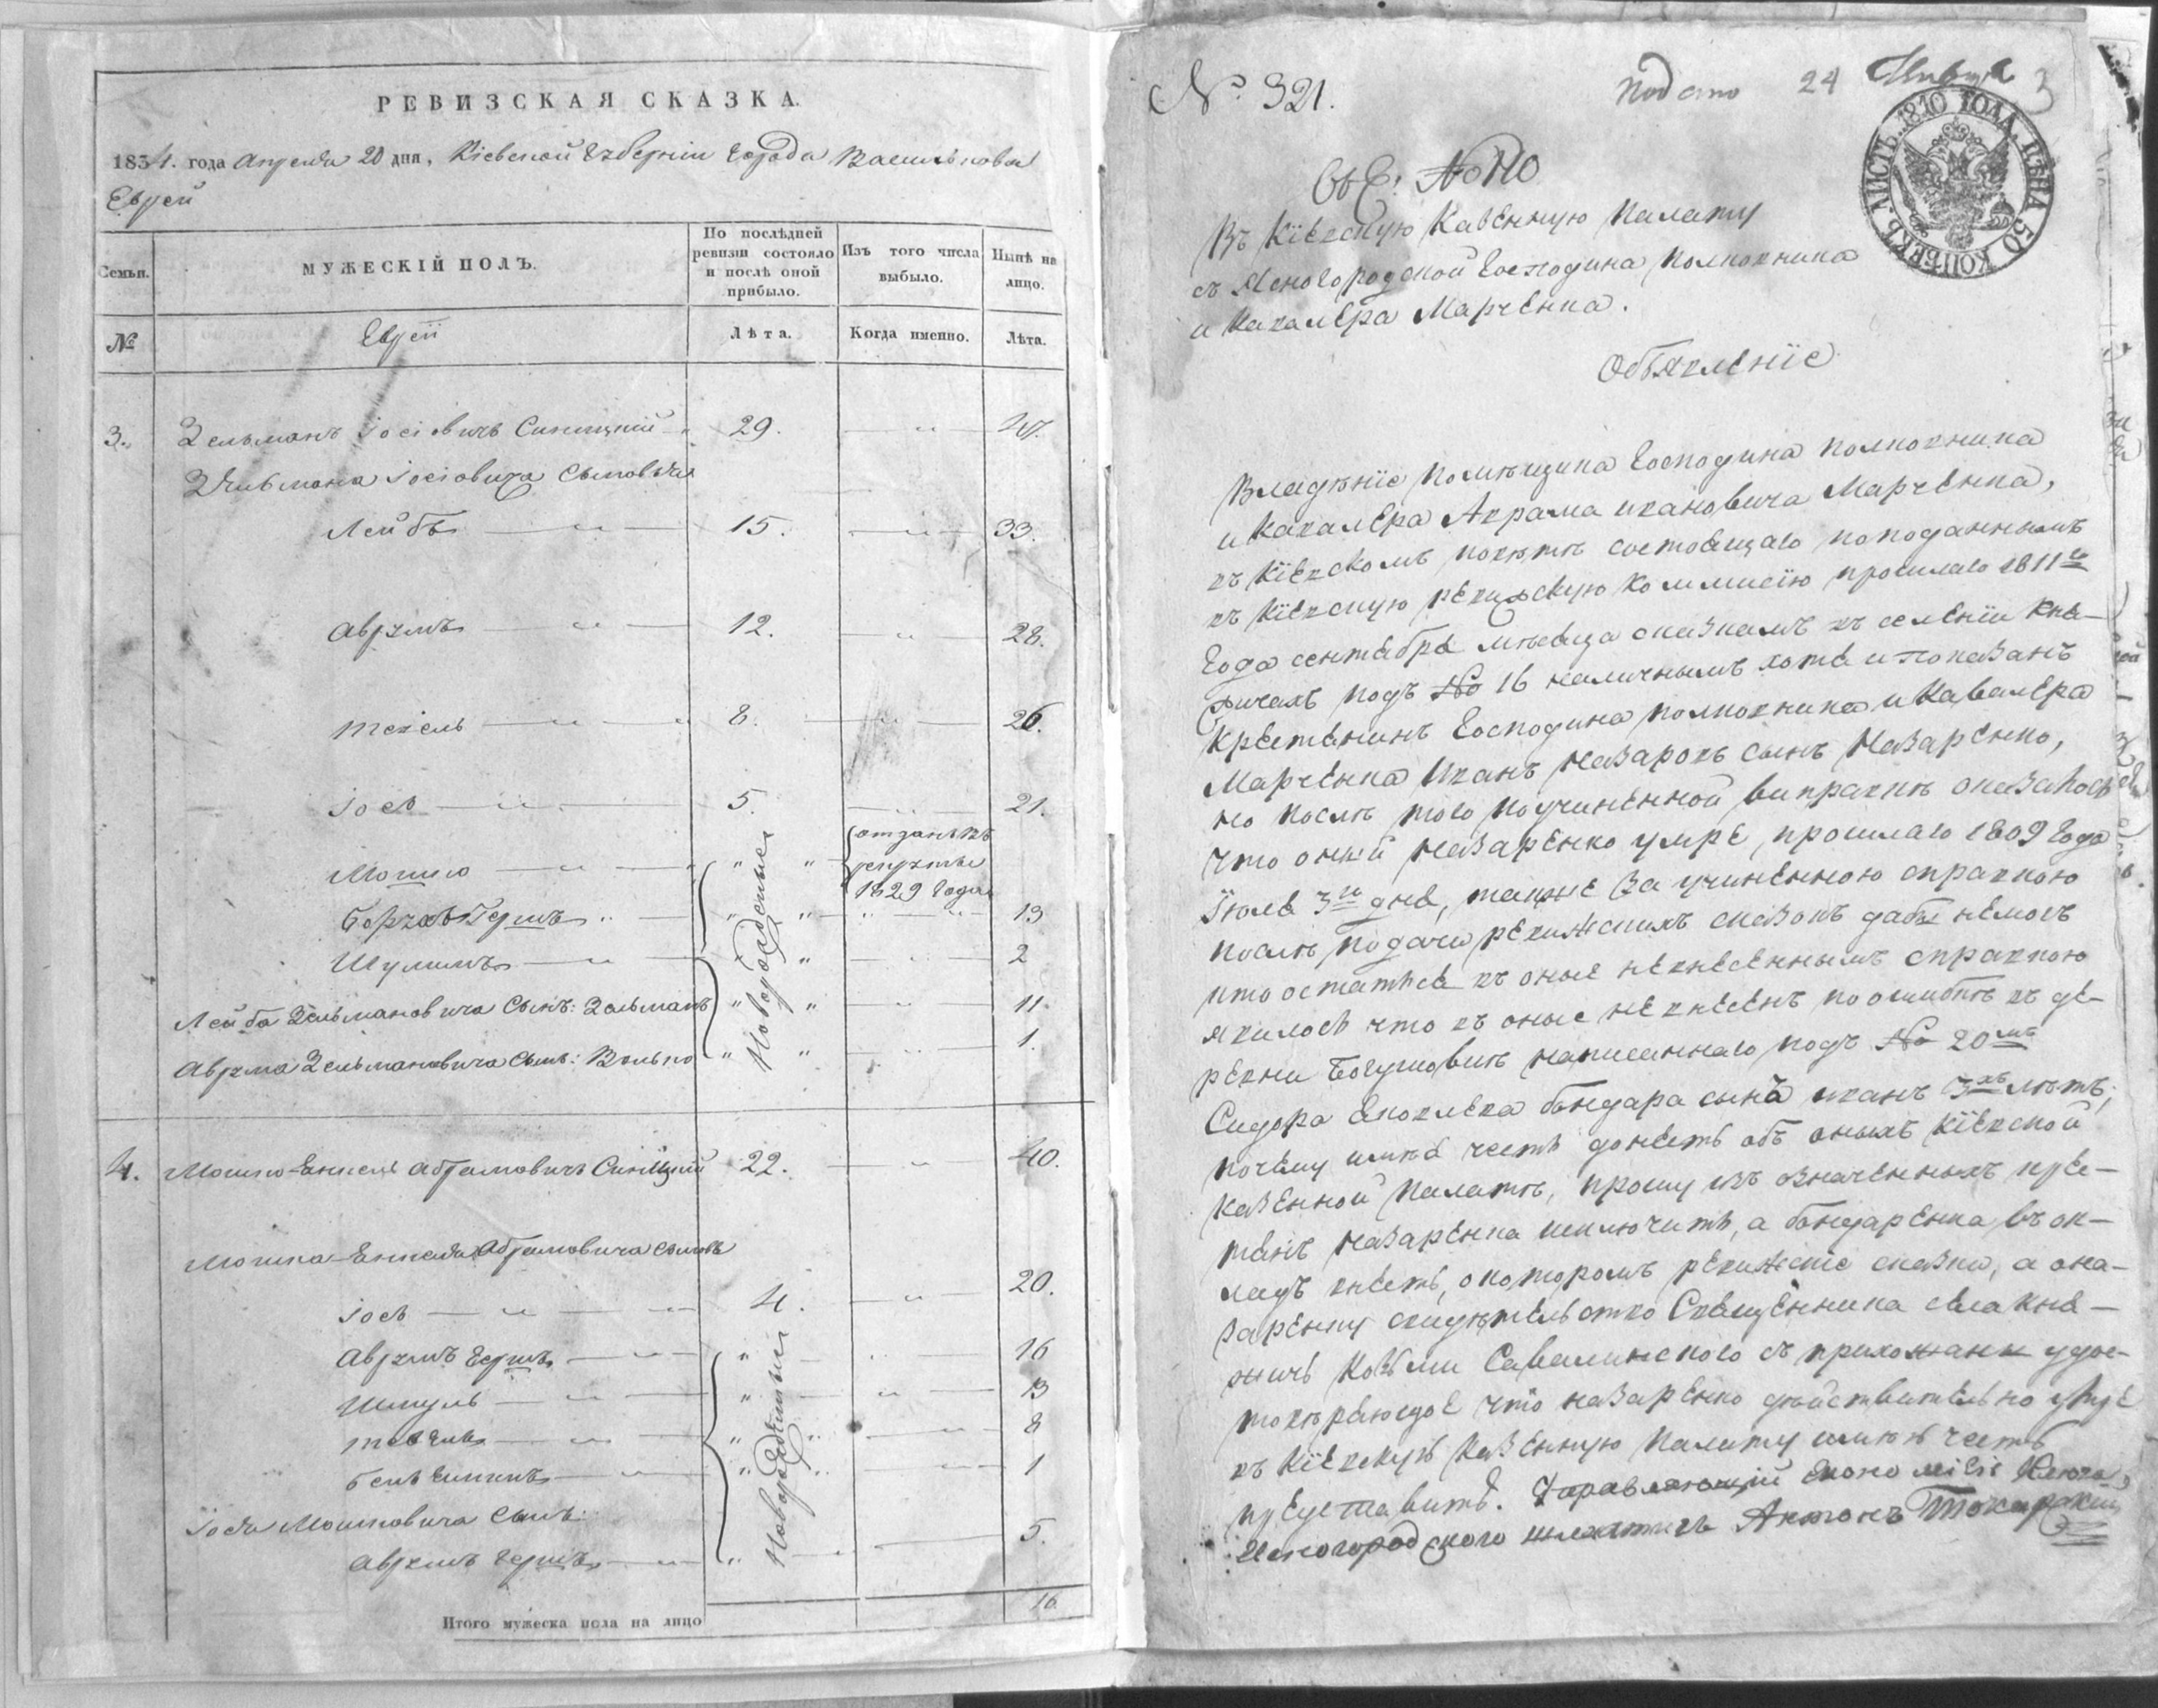 РЕВИЗСКАЯ СКАЗКА.
1834. года Апреля 20 дня, Кіевской Губерніи Города Василькова
Еврей
Семьи.
МУЖЕСКІЙ ПОЛЪ.
По послѣдней ревизіи состояло и послѣ оной прибыло.
Изъ того числа выбыло.
Нынѣ на лицо.
№
Еврей
Лѣта.
Когда именно.
Лѣта.
3. Зельманъ Іосіовичъ Синицкій 29. — " — 47.
Зельмана Іосіовича сыновья
Лейбъ — " — 15. — " — 33.
Аврумъ — " — 12. — " — 28.
Текель — " — 8. — " — 26.
Іось — " — 5. — " — 21.
Мошко — " — " " отданъ въ рекруты 1829 года
Гершъ " — " " — " " — 13
Шулимъ — " — " — " — 2
Новорожденные
Лейба Зельмановича Сынъ: Зельманъ " " — " — 11.
Аврума Зельмановича Сынъ: Волько " " — " — 1.
4. Мошко-Енкель Абрамовичъ Синицкій 22. — " — 40.
Мошка-Енкеля Абрамовича сыновья
Іось — " — " 4. — " — 20.
Аврумъ Гершъ — " — " — " — 16
Шмуль — " — " — " — 13
— " — " " — " — 8
— " — " " — " — 1
Новорожденные
Іося Мошковича Сынъ:
Аврумъ Гершъ — " — " — " — 5.
Итого мужеска пола на лицо 16
№ 321.
Подано 24 3
ЛИСТЪ. 1810 ГОДА. ЦѢНА 50 КОПѢЕКЪ.
№ 110
Въ Кіевскую Казенную Палату
съ Ясногородской Господина Полковника
и Кавалера Марченка.
Объявленіе
Владѣніе помѣщика Господина полковника
и Кавалера Аврама Ивановича Марченка,
въ Кіевскомъ повѣтѣ состоящаго поподаннымъ
въ Кіевскую ревизскую Коммисію прошлаго 1811го
Года сентября мѣсяца сказкамъ въ селеніи Кня-
жичахъ подъ № 16 наличнымъ хотя и показанъ
крестянинъ Господина полковника и Кавалера
Марченка Иванъ Назаровъ сынъ Назаренко,
но послѣ того поучиненной виправкѣ оказалось
что оный Назаренко умре, прошлаго 1809 Года
Іюля 3го дня, также за учиненною справкою
послѣ подачи ревижскихъ сказокъ дабы немогъ
кто остатся въ оные невнесеннымъ справкою
явилось что въ оные невнесенъ поошибкѣ въ де-
ревни написаннаго подъ № 20мъ
Сидора Яковлева бондара сына иванъ 3хъ лѣтъ,
почему имѣя честь донесть объ оныхъ Кіевской
Казенной Палатѣ, прошу изъ означенныхъ кре-
тянъ Назаренка исключить, а бондаренка въ ок-
ладъ внесть, окоторомъ ревижскіе сказки, а она-
заренку свидѣтельство Священника села Кня-
жичъ Козьми Савалинского съ прихожани удос-
товѣряющое что назаренко дѣйствительно умре
въ Кіевскую Казенную Палату имѣю честь
представить. Управляющій Економіею Ключа
Ясногородского шляхтичъ Антонъ Токарскій